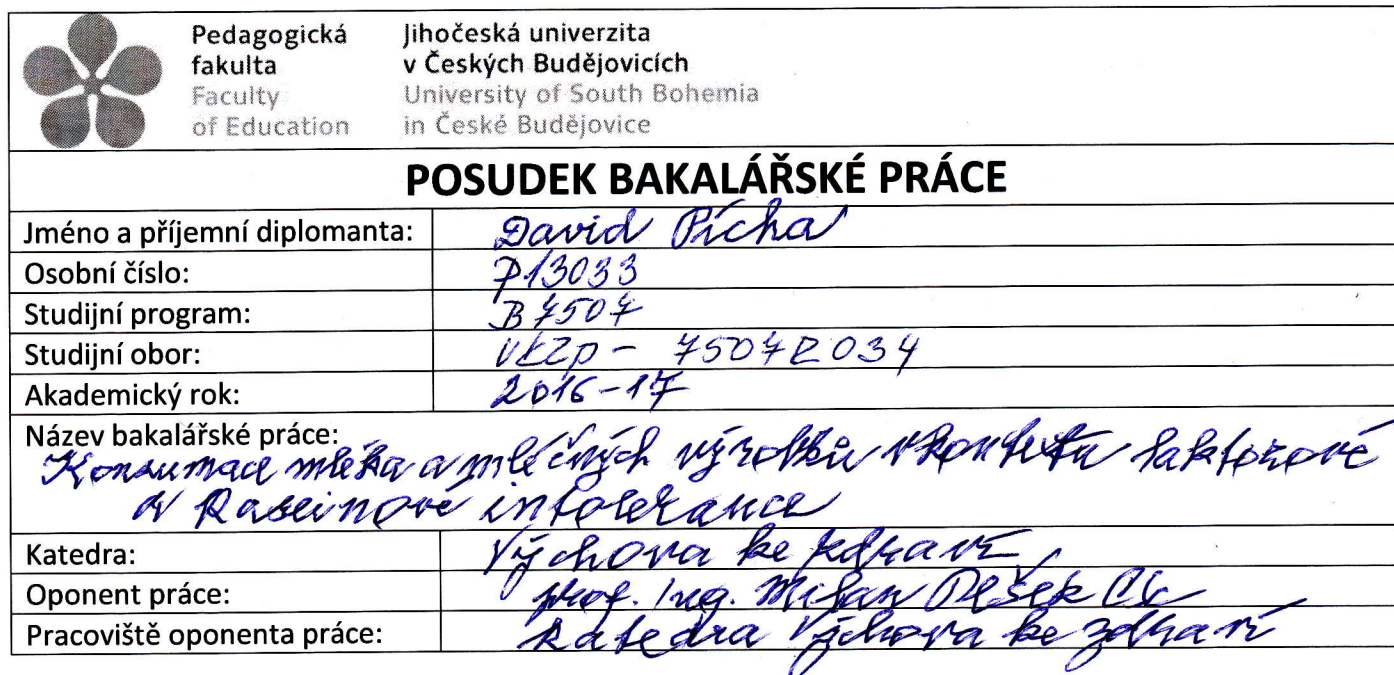 Pedagogická Jihočeská univerzita
fakulta v Českých Budějovicích
Faculty University of South Bohemia
of Education in České Budějovice
POSUDEK BAKALÁŘSKÉ PRÁCE
Jméno a příjemní diplomanta: David Pícha
Osobní číslo: P13033
Studijní program: B7507
Studijní obor: VKZp - 7507R034
Akademický rok: 2016-17
Název bakalářské práce:
Konzumace mléka a mléčných výrobků v kontextu laktózové
a kaseinové intolerance
Katedra: Výchova ke zdraví
Oponent práce: prof. Ing. Milan Pešek
Pracoviště oponenta práce: Katedra Výchova ke zdraví